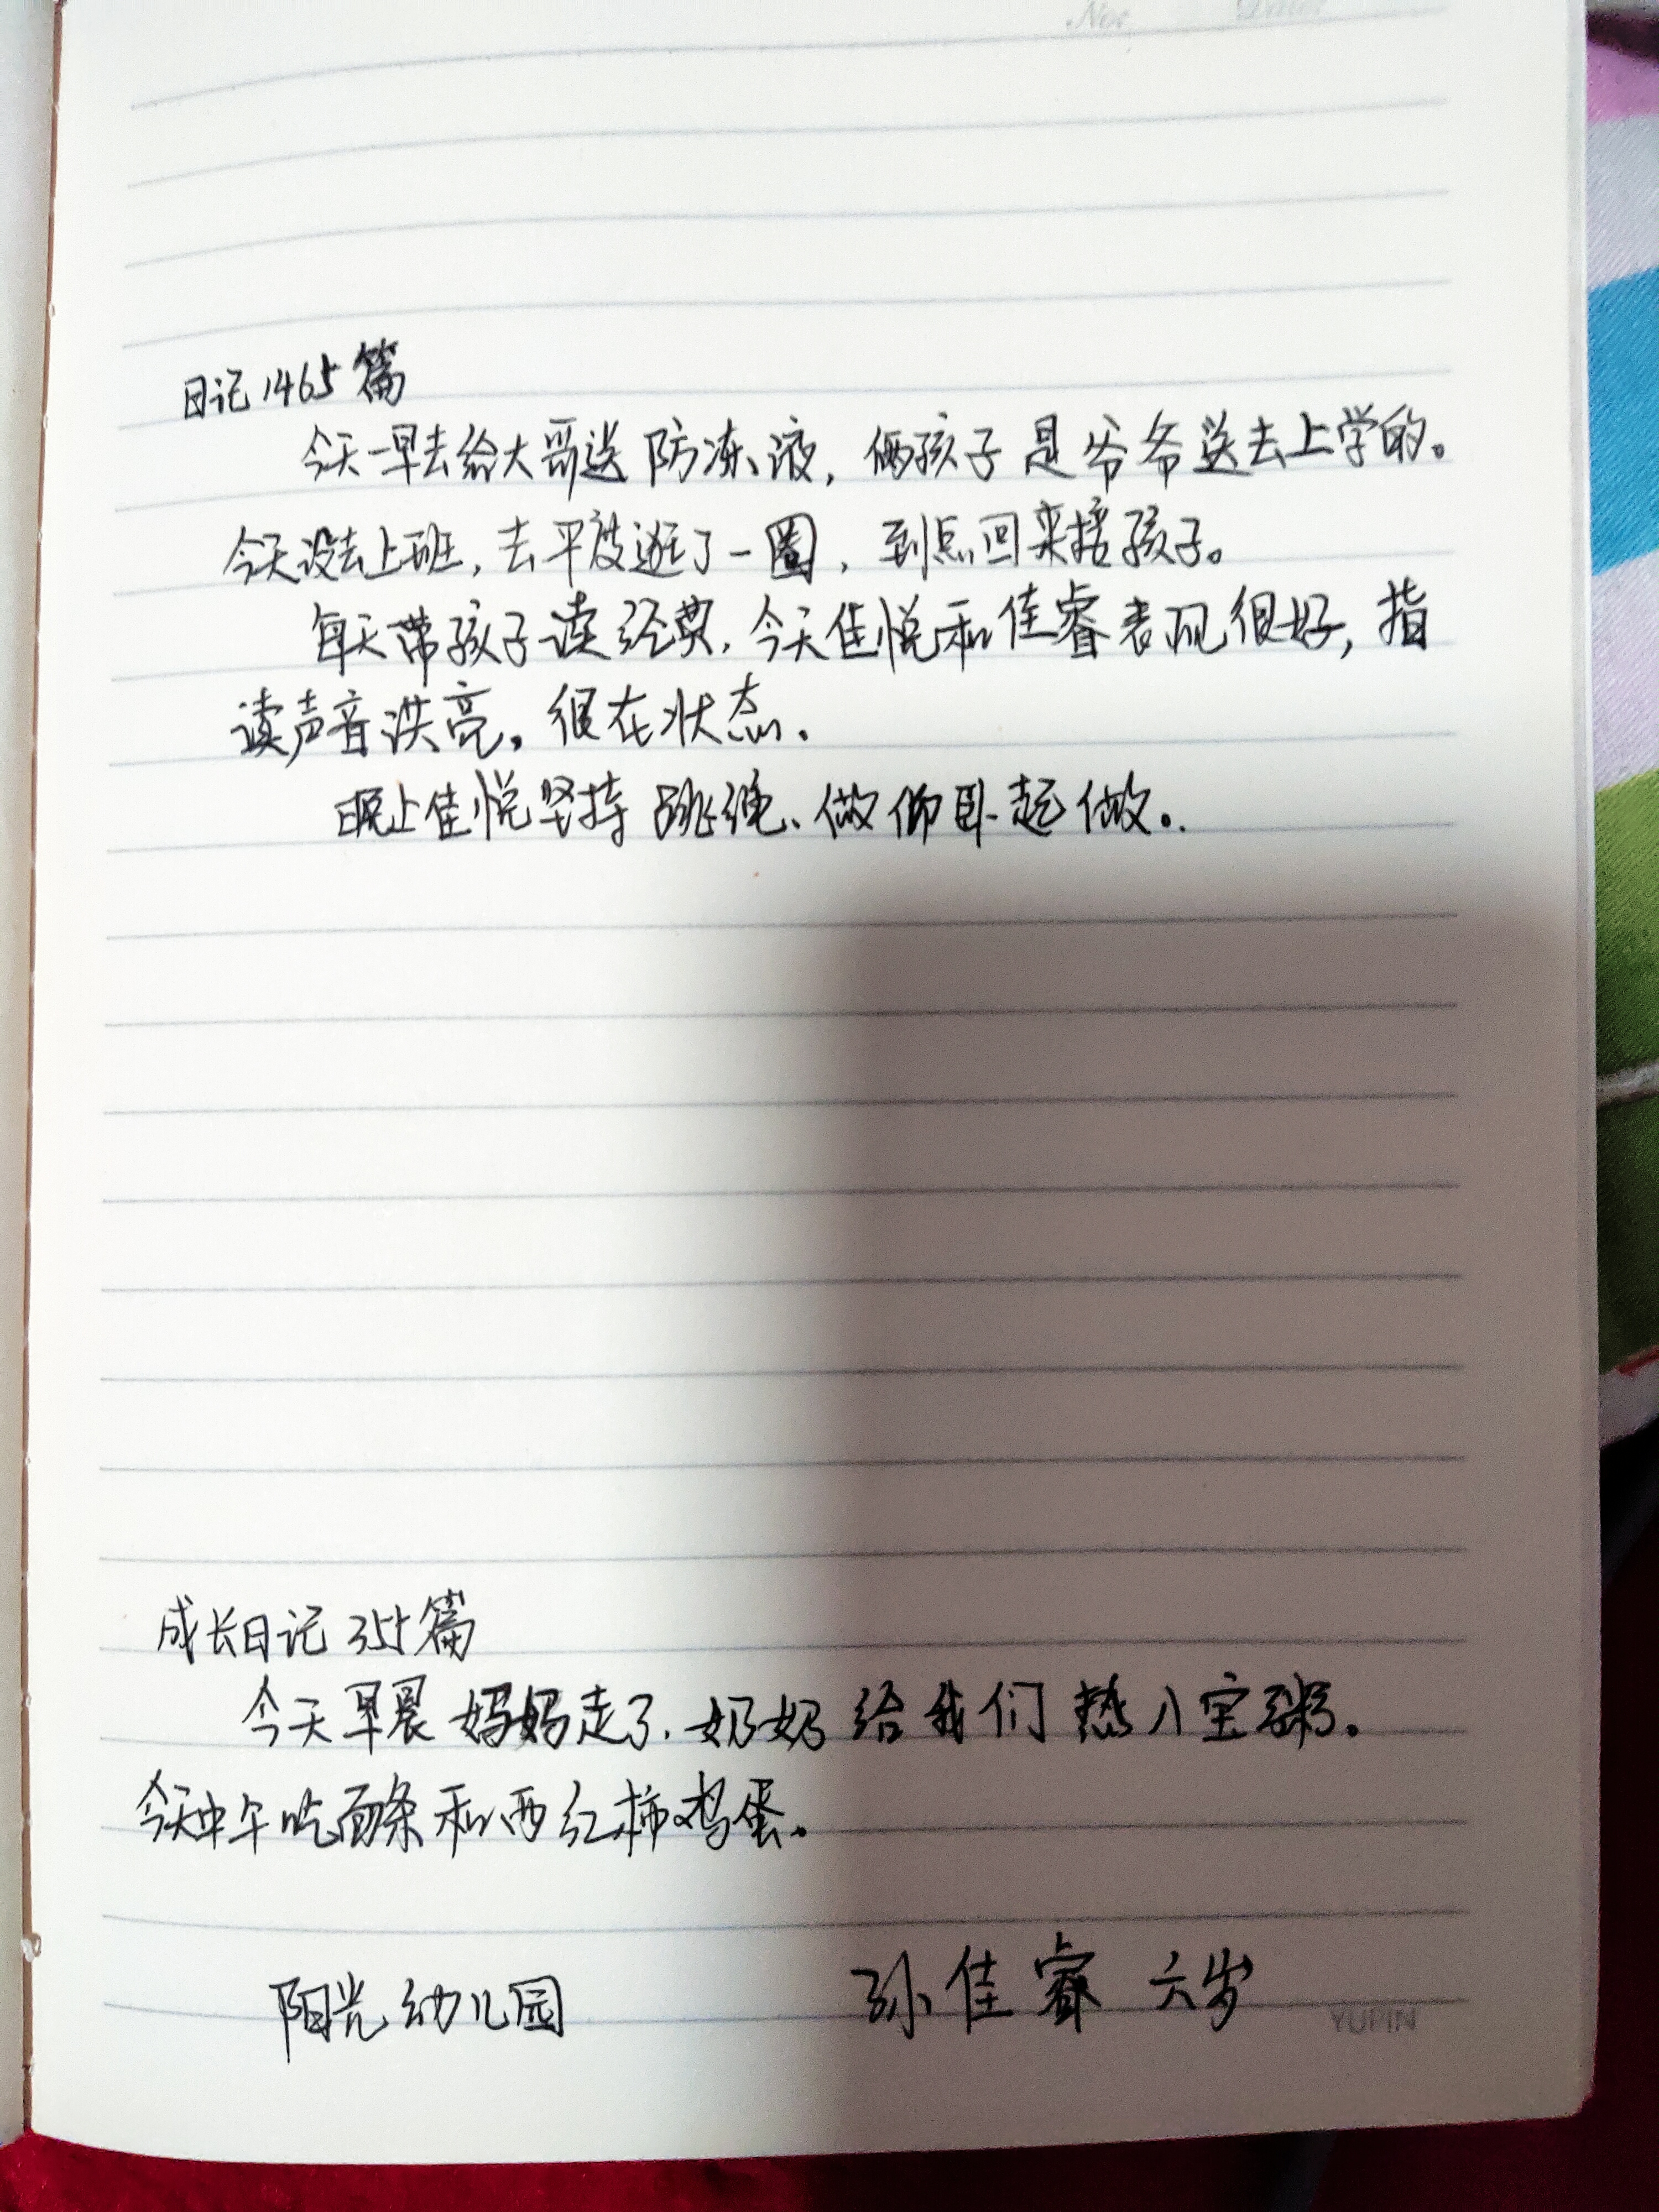 No. Date
日记1465篇
今天一早去给大哥送防冻液,俩孩子是爷爷送去上学的。
今天没去上班,去平度逛了一圈,到点回来接孩子。
每天带孩子读经典,今天佳悦和佳睿表现很好,指
读声音洪亮。很在状态.
晚上佳悦坚持跳绳、做仰卧起做。
成长日记355篇
今天早晨妈妈走了.奶奶给我们热八宝粥。
今天中午吃面条和西红柿鸡蛋。
阳光幼儿园 孙佳睿 六岁
YUPIN